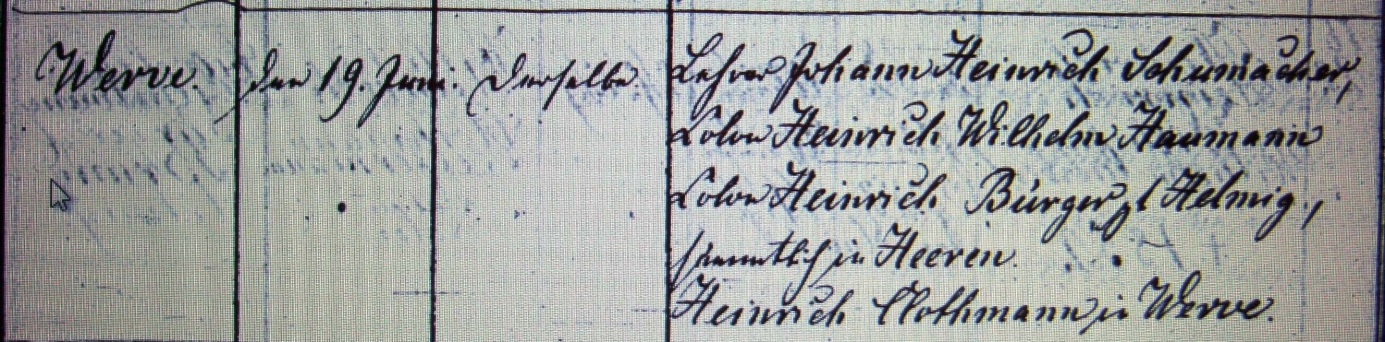 Werve. den 19. Juni. Derselbe. Lehrer Johann Heinrich Schumacher,
Colon Heinrich Wilhelm Haumann
Colon Heinrich Bürger gt Helmig,
sämmtlich in Heeren.
Heinrich Clothmann in Werve.